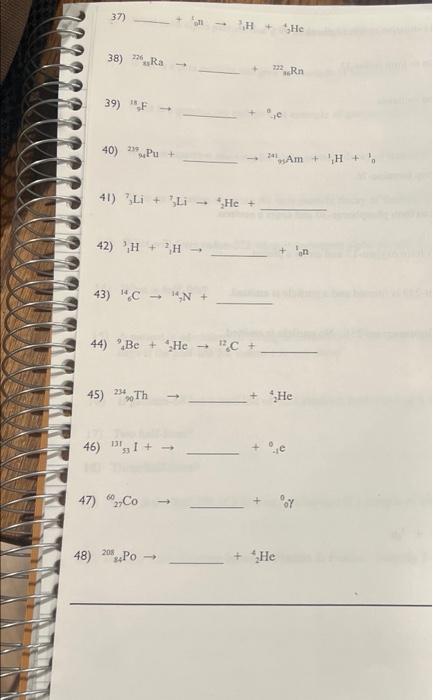 37) ______ + ¹₀n → ³₁H + ⁴₂He
38) ²²⁶₈₈Ra → ______ + ²²²₈₆Rn
39) ¹⁸₉F → ______ + ⁰₋₁e
40) ²³⁹₉₄Pu + ______ → ²⁴¹₉₅Am + ¹₁H + ¹₀
41) ⁷₃Li + ⁷₃Li → ⁴₂He +
42) ³₁H + ²₁H → ______ + ¹₀n
43) ¹⁴₆C → ¹⁴₇N + ______
44) ⁹₄Be + ⁴₂He → ¹²₆C + ______
45) ²³⁴₉₀Th → ______ + ⁴₂He
46) ¹³¹₅₃I + → ______ + ⁰₋₁e
47) ⁶⁰₂₇Co → ______ + ⁰₀γ
48) ²⁰⁸₈₄Po → ______ + ⁴₂He